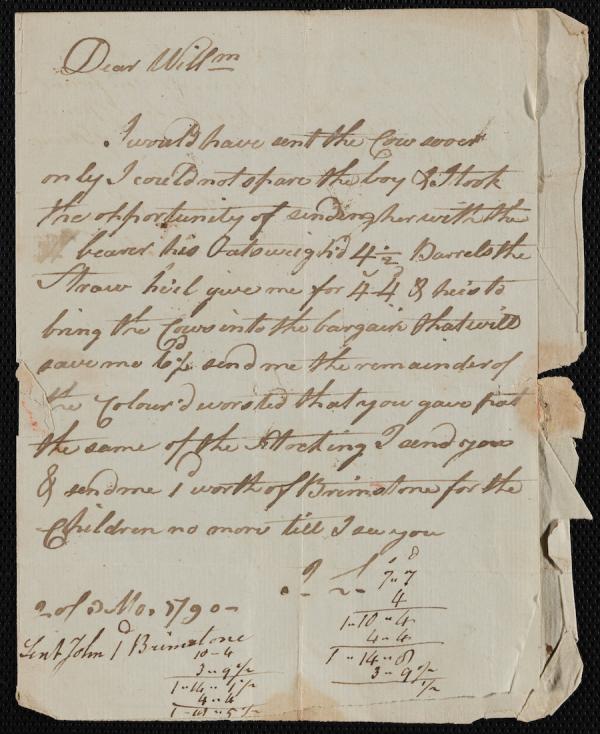 Dear Willm
I would have sent the Cow sooer
only I could not spare the boy & I took
the opportunity of sending her with the
bearer his Oats weigh'd 4 1/2 Barrels the
Straw he'el give me for 4s 4d & he is to
bring the Cows into the bargain that will
save me 6d 1/2 send me the remainder of
the Colour'd worsted that you gave pat
the same of the Stocking I send you
& send me 1d worth of Brimstone for the
Children no more till I see you
2 of 3 Mo. 1790
Sent John 1d Brimstone
10 - 4
3 " 9 1/2
1 " 14 " 1 1/2
4 " 4
8
7 " 7
4
1 " 10 " 4
4 " 4
1 " 14 " 8
3 " 9 1/2
1/2